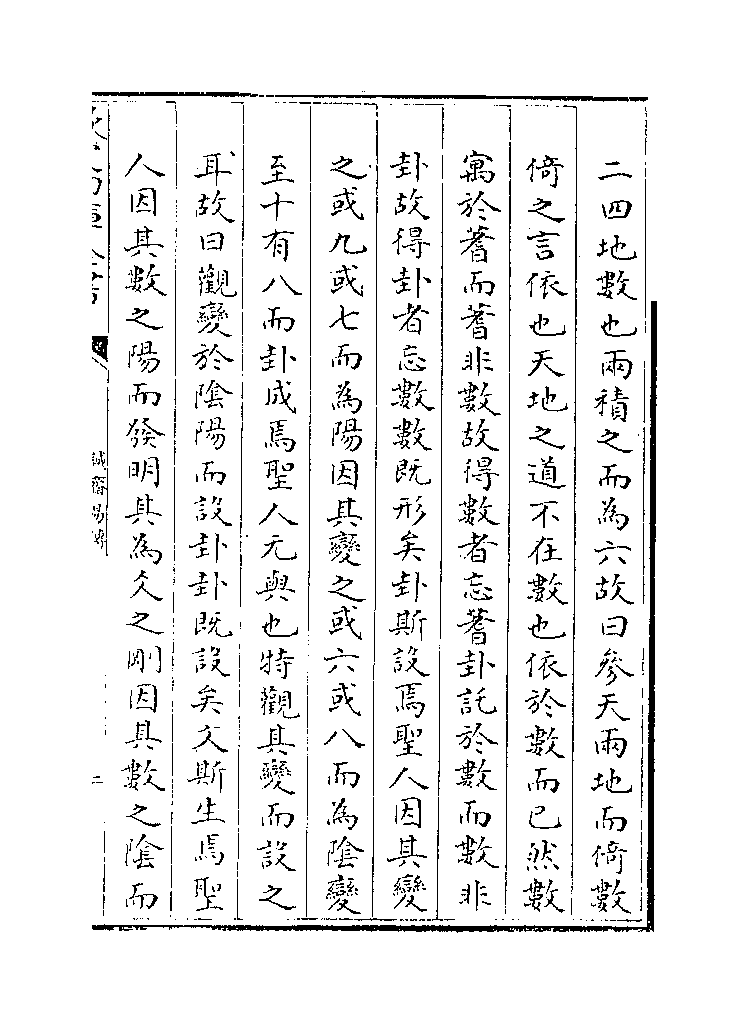 二四地數也兩積之而為六故曰參天兩地而倚數
倚之言依也天地之道不在數也依於數而已然數
寓於蓍而蓍非數故得數者忘蓍卦託於數而數非
卦故得卦者忘數數既形矣卦斯設焉聖人因其變
之或九或七而為陽因其變之或六或八而為陰變
至十有八而卦成焉聖人无與也特觀其變而設之
耳故曰觀變於陰陽而設卦卦既設矣爻斯生焉聖
人因其數之陽而發明其為爻之剛因其數之陰而
誠齋易傳
二